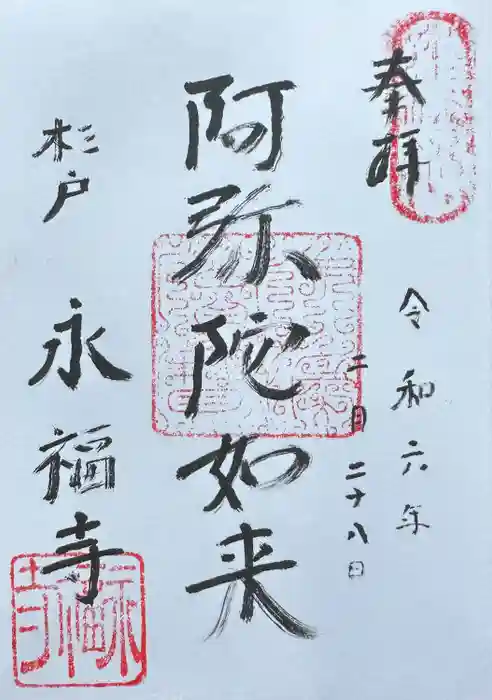 奉拝
令和六年
二月二十八日
阿弥陀如来
杉戸
永福寺